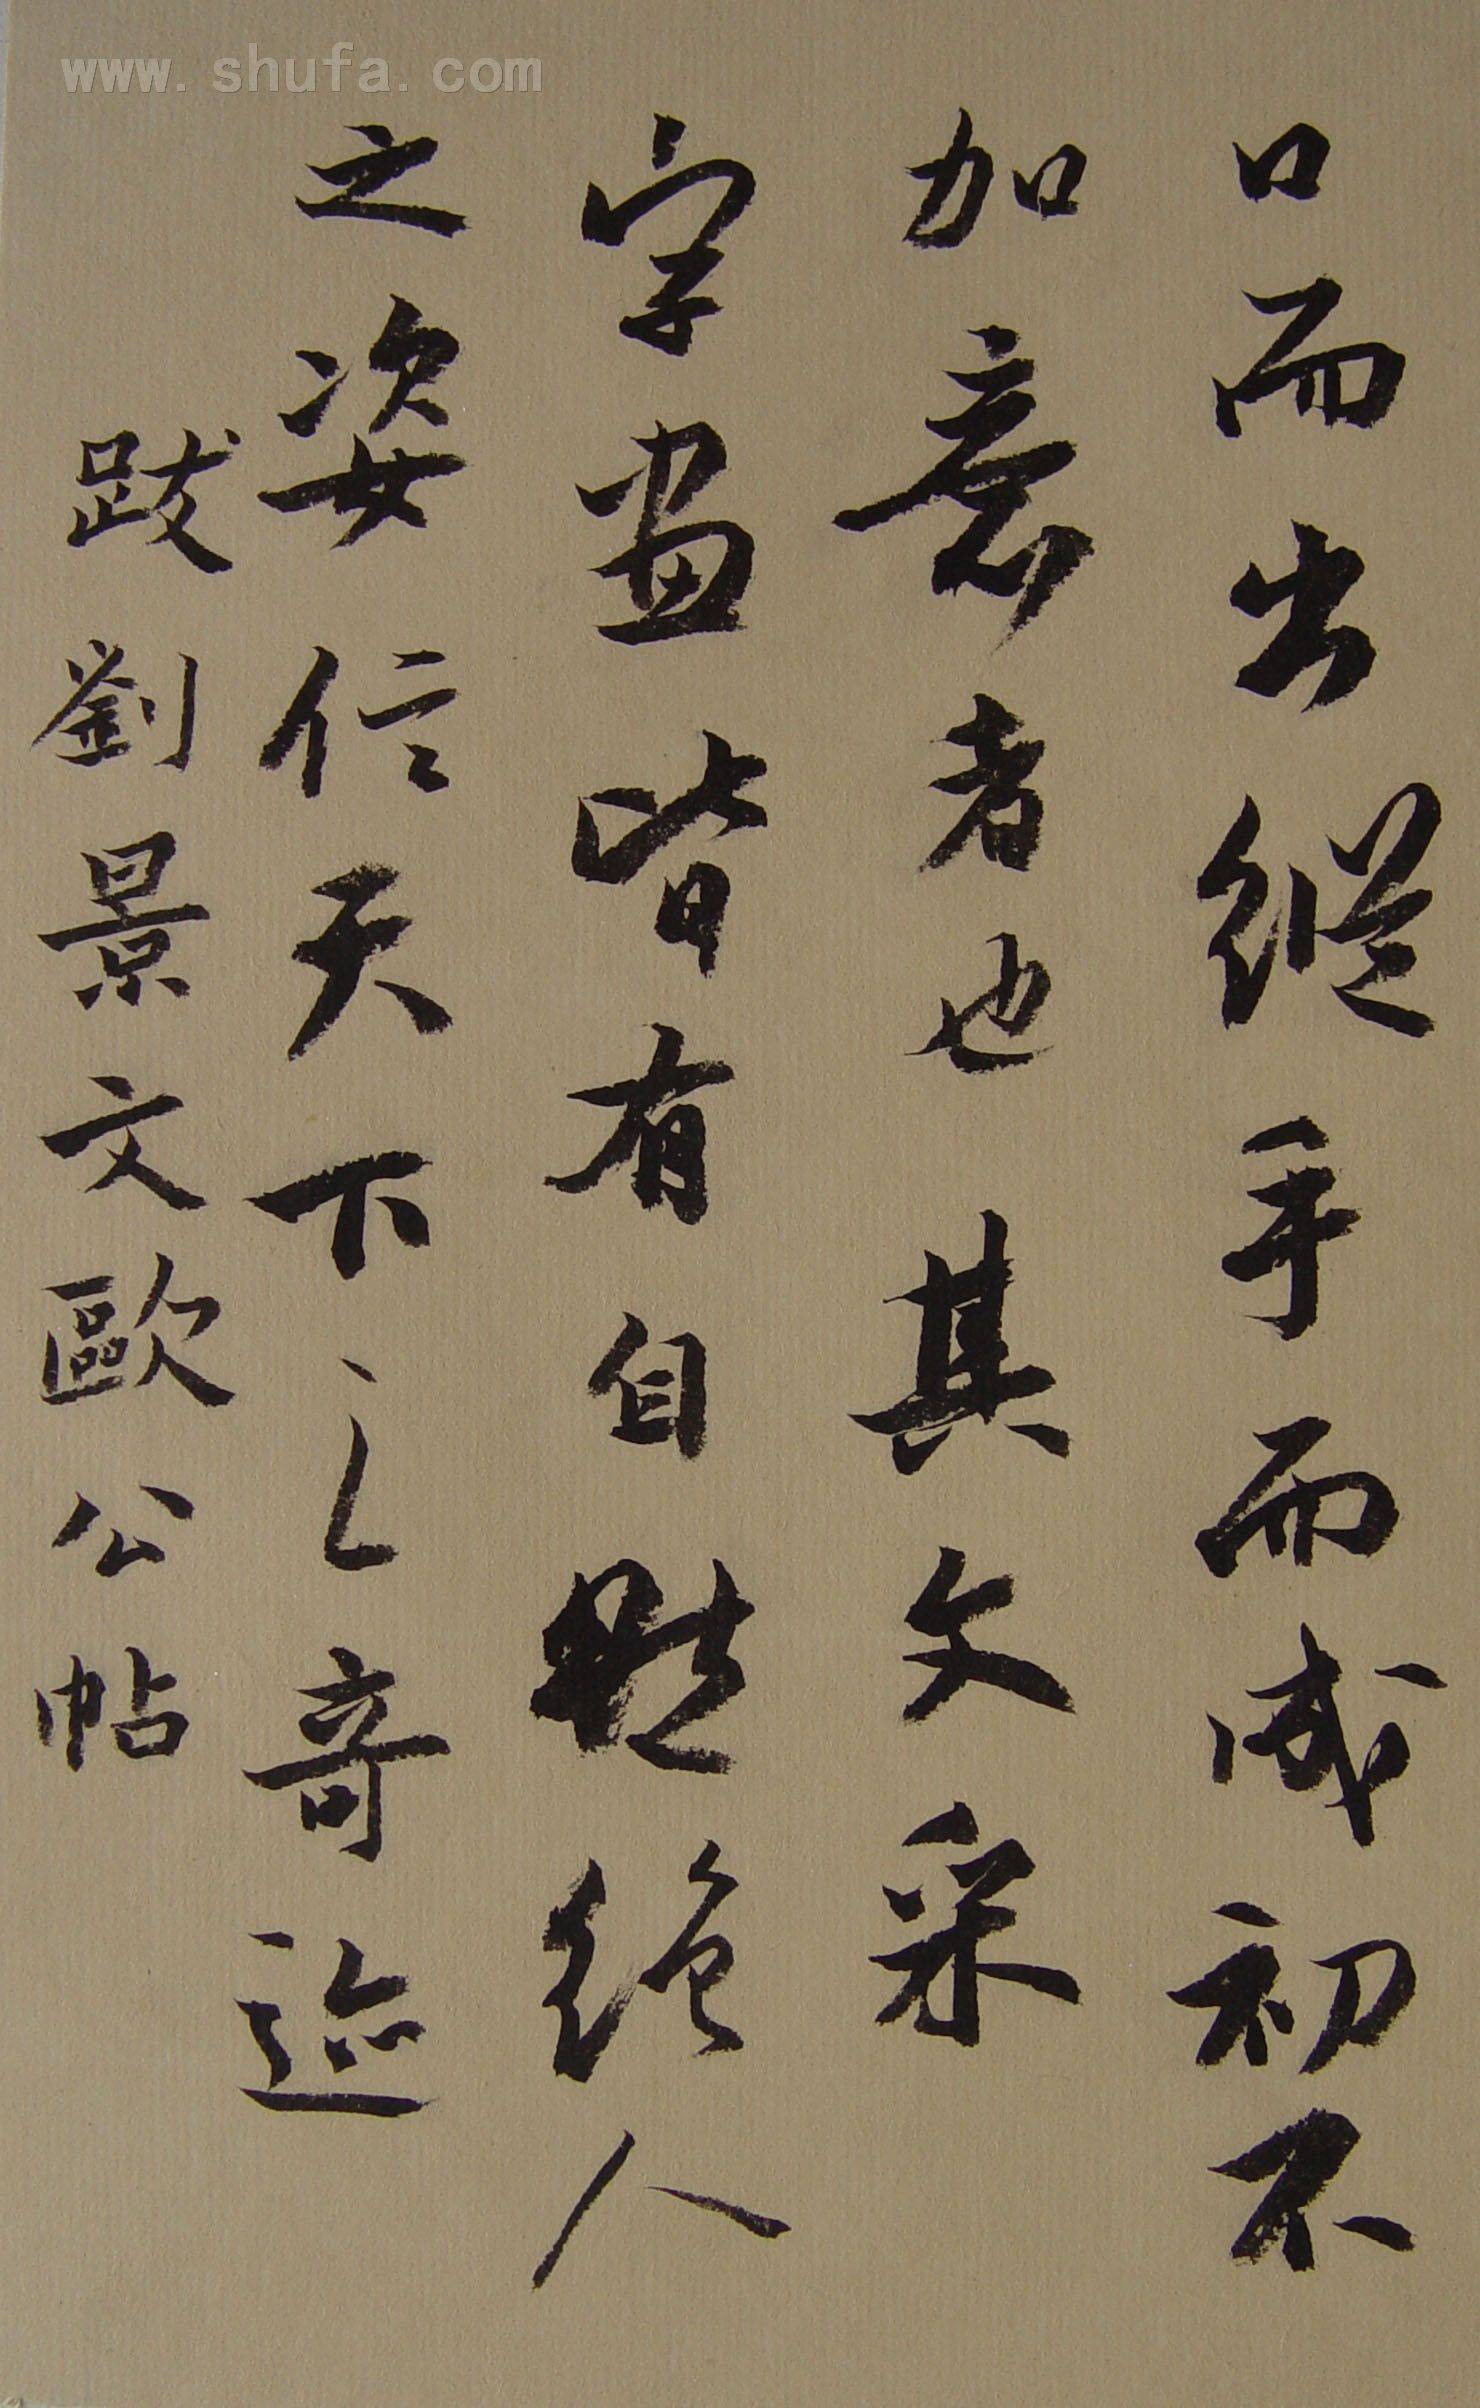 www.shufa.com
口而出縱手而成初不
加意者也其文采
字畫皆有自然絕人
之姿信天下之奇迹
跋劉景文歐公帖